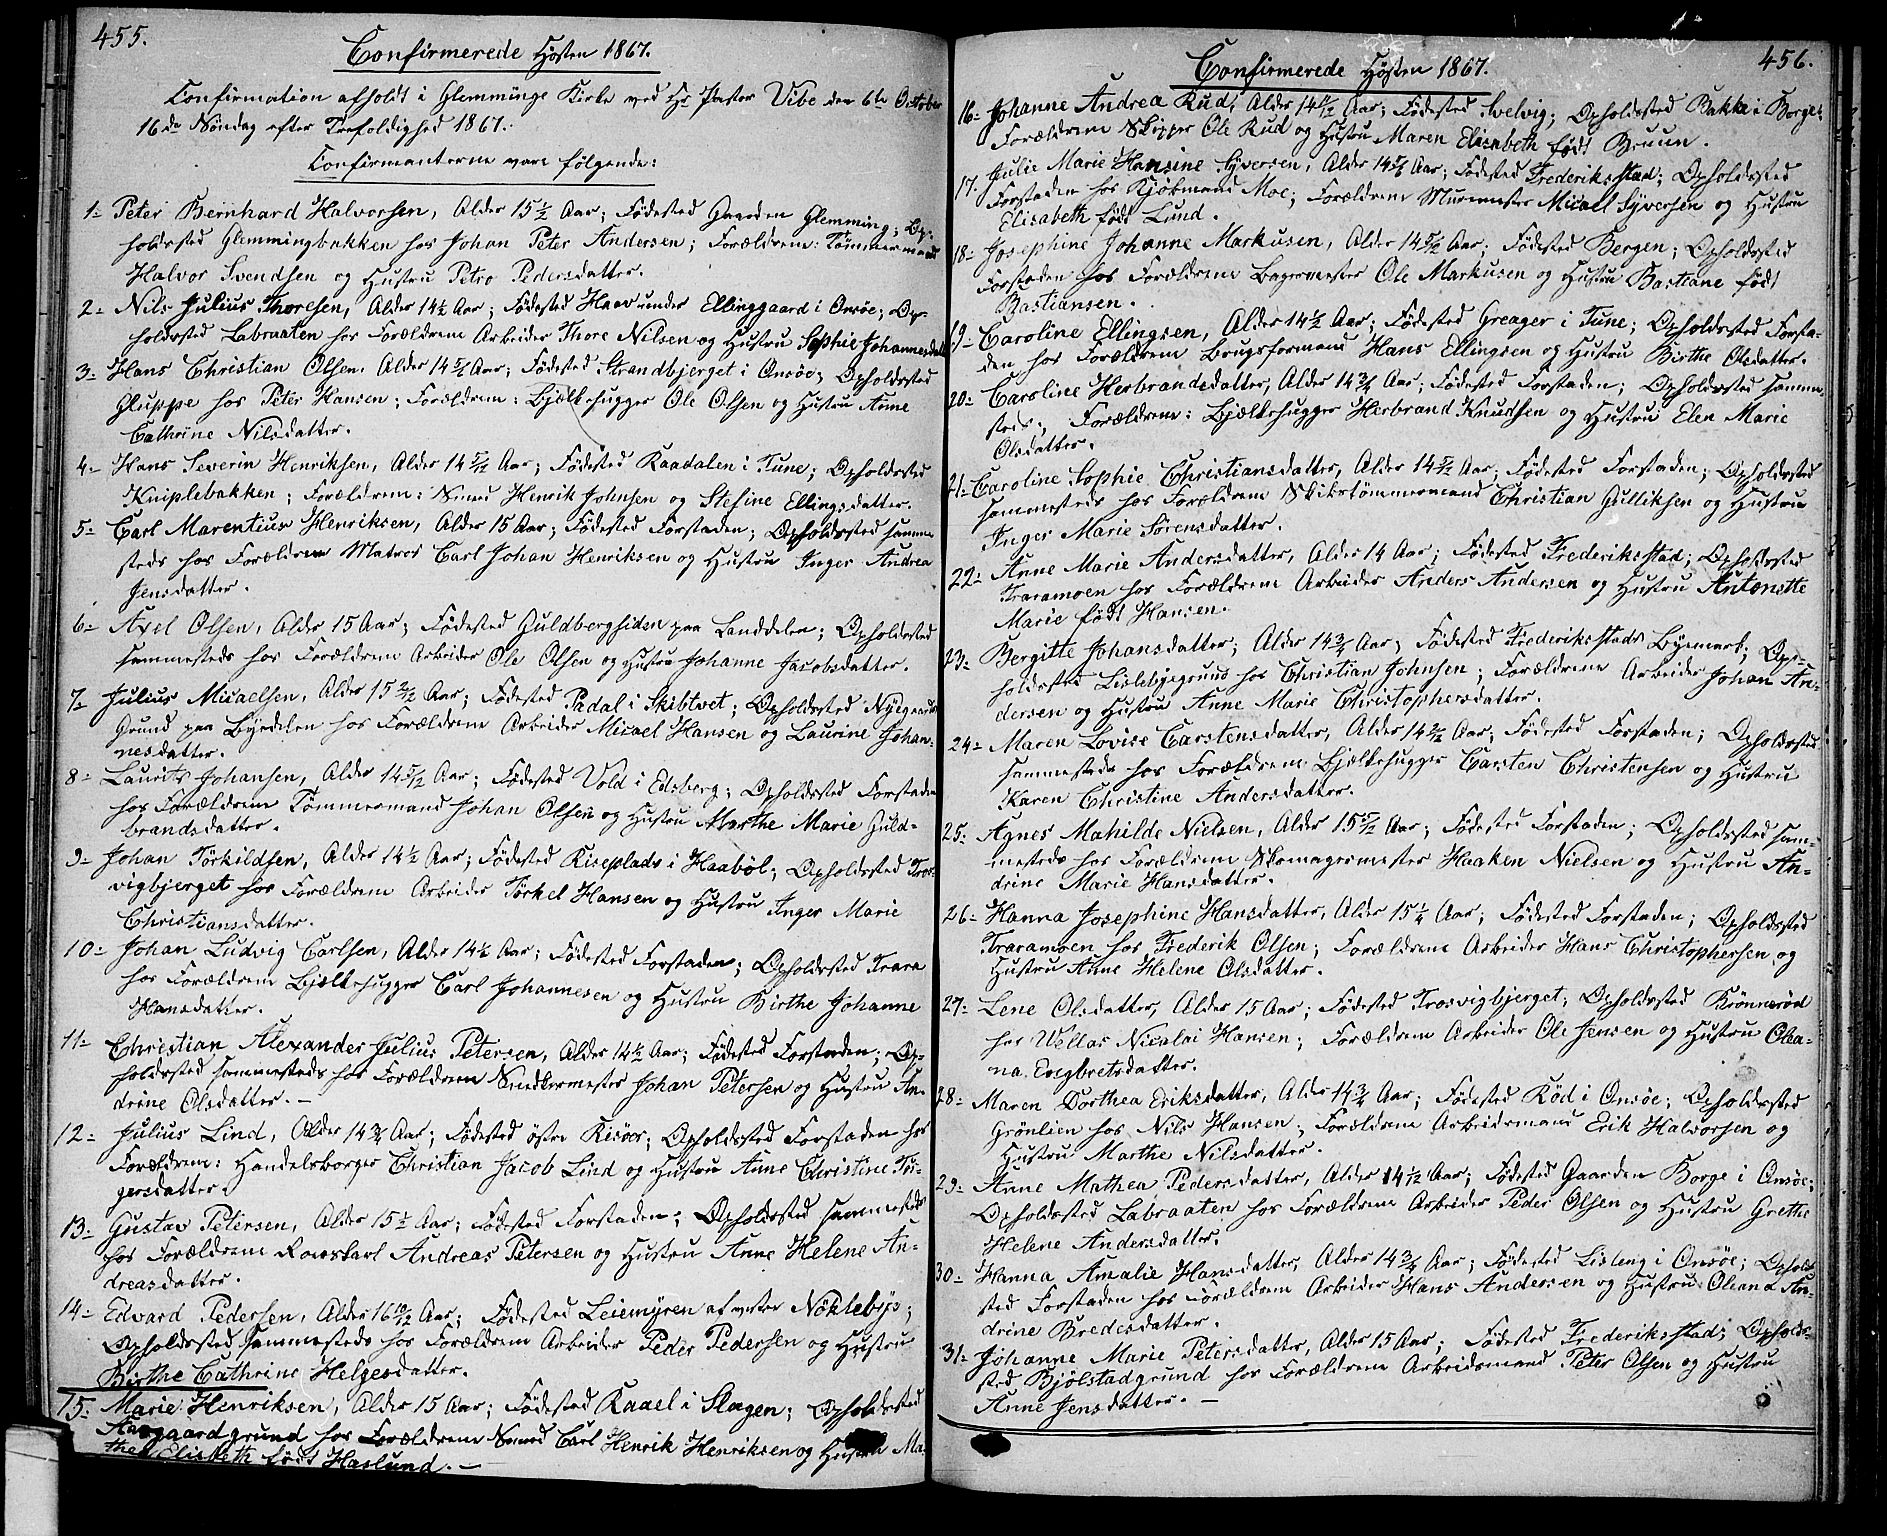 455.
Confirmerede Høsten 1867.
Confirmation afholdt i Glemminge Kirke ved Hr Pastor Vibe den 6te October
16de Søndag efter Trefoldighed 1867.
Confirmanterne vare følgende:
1. Peter Bernhard Halvorsen, Alder 15½ Aar; Fødested Gaarden Glemming; Op-
holdssted Glemmingbakken hos Johan Peter Andersen; Forældrene: Tømmermand
Halvor Svendsen og Hustru Petro Pedersdatter.
2. Nils Julius Thoresen, Alder 14½ Aar; Fødested Haav under Ellinggaard i Onsöe; Op-
holdssted Labraaten hos Forældrene Arbeider Thore Nilsen og Hustru Sophie Johannesdatter
3. Hans Christian Olsen, Alder 14 Aar; Fødested Strandbjerget i Onsöe; Opholdssted
Gluppe hos Peter Hansen; Forældrene: Bjælkehugger Ole Olsen og Hustru Anne
Cathrine Nilsdatter.
4. Hans Severin Henriksen, Alder 14 5/12 Aar; Fødested Raadalen i Tune; Opholdssted
Kniplebakken; Forældrene: Smed Henrik Johnsen og Stefine Ellingsdatter.
5. Carl Marentius Henriksen, Alder 15 Aar; Fødested Forstaden; Opholdssted samme-
steds hos Forældrene Matros Carl Johan Henriksen og Hustru Inger Andrea
Jensdatter.
6. Axel Olsen, Alder 15 Aar; Fødested Guldbergsiden paa Landdelen; Opholdssted
sammesteds hos Forældrene Arbeider Ole Olsen og Hustru Johanne Jacobsdatter.
7. Julius Micaelsen, Alder 15 Aar; Fødested Padal i Skibtvet; Opholdssted Nygaards
Grund paa Byedelen hos Forældrene Arbeider Micael Hansen og Laurine Johan-
nesdatter.
8. Laurits Johansen, Alder 14 5/12 Aar; Fødested Vold i Edsberg; Opholdssted Forstaden
hos Forældrene Tømmermand Johan Olsen og Hustru Marthe Marie Guld-
brandsdatter.
9. Johan Törkildsen, Alder 14½ Aar; Fødested Riseplads i Haaböl; Opholdssted Tros-
vigbjerget hos Forældrene Arbeider Törkel Hansen og Hustru Inger Marie
Christiansdatter.
10. Johan Ludvig Carlsen, Alder 14½ Aar; Fødested Forstaden; Opholdssted Trara
hos Forældrene Bjælkehugger Carl Johannesen og Hustru Birthe Johanne
Hansdatter.
11. Christian Alexander Julius Petersen, Alder 14½ Aar; Fødested Forstaden; Op-
holdssted sammesteds hos Forældrene Snedkermester Johan Petersen og Hustru An-
drine Olsdatter. —
12. Julius Lind, Alder 14¾ Aar; Fødested östre Risöer; Opholdssted Forstaden hos
Forældrene: Handelsborger Christian Jacob Lind og Hustru Anne Christine Tör-
gersdatter.
13. Gustav Petersen, Alder 15½ Aar; Fødested Forstaden; Opholdssted sammesteds
hos Forældrene Andreas Petersen og Hustru Anne Helene An-
dreasdatter.
14. Edvard Pedersen, Alder 16 10/12 Aar; Fødested Leiemyren af vestre Nöklebye;
Opholdssted sammesteds hos Forældrene Arbeider Peder Pedersen og Hustru
Birthe Cathrine Helgesdatter.
15. Marie Henriksen, Alder 15 Aar; Fødested Raael i Slagen; Opholdssted
Aaregaardgrund hos Forældrene Smed Carl Henrik Henriksen og Hustru Ma-
thea Elisbeth født Haslund. —
456.
Confirmerede Høsten 1867.
16. Johanne Andrea Rud, Alder 14 Aar; Fødested Svelvig; Opholdssted Bakke i Borge;
Forældrene Skipper Ole Rud og Hustru Maren Elisabeth født Bruun.
17. Julie Marie Hansine Syversen, Alder 14 Aar; Fødested Frederiksstad; Opholdssted
Forstaden hos Kjöbmand Moe; Forældrene Murmester Micael Syversen og Hustru
Elisabeth født Lund.
18. Josephine Johanne Markusen, Alder 14 5/12 Aar; Fødested Bergen; Opholdssted
Forstaden hos Forældrene Bagermester Ole Markusen og Hustru Bastiane født
Bastiansen.
19. Caroline Ellingsen, Alder 14½ Aar; Fødested Greager i Tune; Opholdssted Forsta-
den hos Forældrene Brugsformand Hans Ellingsen og Hustru Birthe Olsdatter.
20. Caroline Herbrandsdatter, Alder 14¾ Aar; Fødested Forstaden; Opholdssted samme-
steds; Forældrene: Bjælkehugger Herbrand Knudsen og Hustru Elen Marie
Olsdatter.
21. Caroline Sophie Christiansdatter, Alder 14 5/12 Aar; Fødested Forstaden; Opholdssted
sammesteds hos Forældrene Skibstömmermand Christian Gulliksen og Hustru
Inger Marie Sörensdatter.
22. Anne Marie Andersdatter, Alder 14 Aar; Fødested Frederiksstad; Opholdssted
Traramoen hos Forældrene Arbeider Anders Andersen og Hustru Antonette
Marie født Hansen.
23. Bergitte Johansdatter, Alder 14¾ Aar; Fødested Frederiksstads Byemark; Op-
holdssted Lislebyegrund hos Christian Johnsen; Forældrene Arbeider Johan An-
dersen og Hustru Anne Marie Christophersdatter.
24. Maren Lovise Carstensdatter, Alder 14 Aar; Fødested Forstaden; Opholdssted
sammesteds hos Forældrene Bjælkehugger Carsten Christensen og Hustru
Karen Christine Andersdatter.
25. Agnes Mathilde Nielsen, Alder 15 Aar; Fødested Forstaden; Opholdssted sam-
mesteds hos Forældrene Skomagermester Haaken Nielsen og Hustru An-
drine Marie Hansdatter.
26. Hanna Josephine Hansdatter, Alder 15¼ Aar; Fødested Forstaden; Opholdssted
Traramoen hos Frederik Olsen; Forældrene Arbeider Hans Christophersen og
Hustru Anne Helene Olsdatter.
27. Lene Olsdatter, Alder 15 Aar; Fødested Trosvigbjerget; Opholdssted Brönneröd
hos Nicolai Hansen; Forældrene Arbeider Ole Jensen og Hustru Olea-
na Engbretsdatter.
28. Maren Dorthea Eriksdatter, Alder 14¾ Aar; Fødested Röd i Onsöe; Opholdssted
Grönlien hos Nils Hansen; Forældrene Arbeidsmand Erik Halvorsen og
Hustru Marthe Nilsdatter.
29. Anne Mathea Pedersdatter, Alder 14 1/12 Aar; Fødested Gaarden Borge i Onsöe;
Opholdssted Labraaten hos Forældrene Arbeider Peder Olsen og Hustru Grethe
Helene Andersdatter.
30. Hanna Amalie Hansdatter, Alder 14¾ Aar; Fødested Lisleng i Onsöe; Opholds-
sted Forstaden hos Forældrene Arbeider Hans Andersen og Hustru Oleana An-
drine Bredesdatter.
31. Johanne Marie Petersdatter, Alder 15 Aar; Fødested Frederiksstad; Opholds-
sted Bjölstadgrund hos Forældrene Arbeidsmand Peter Olsen og Hustru
Anne Jensdatter. —